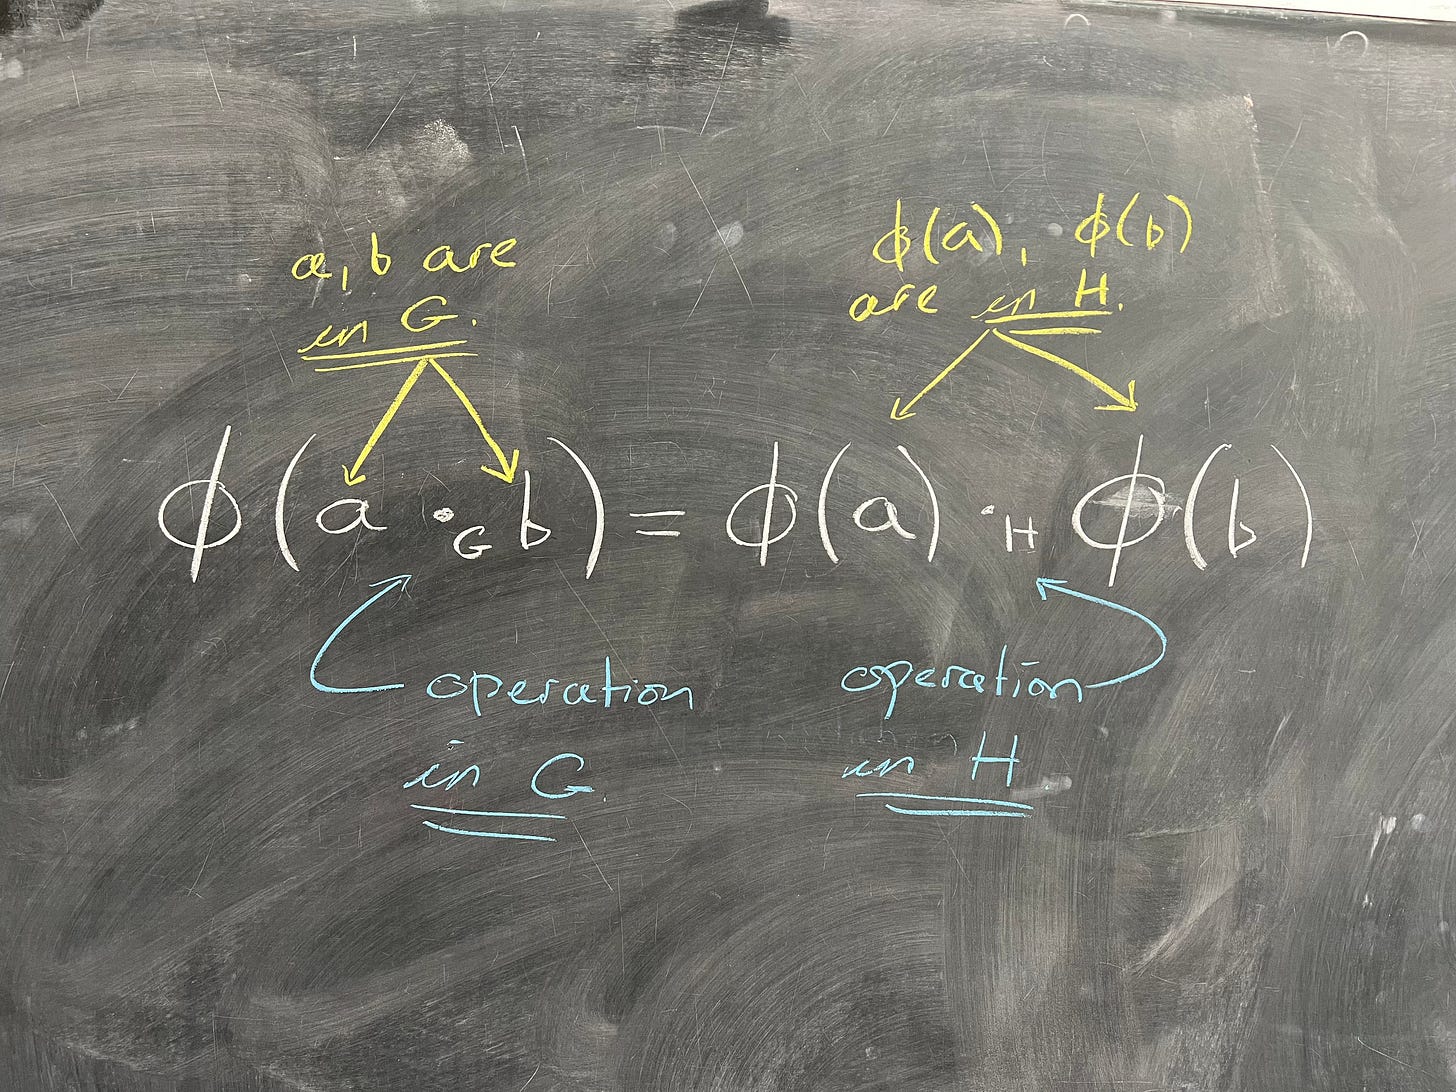 a, b are
in G.
ϕ(a), ϕ(b)
are in H.
ϕ(a ·G b) = ϕ(a) ·H ϕ(b)
operation
in G.
operation
in H